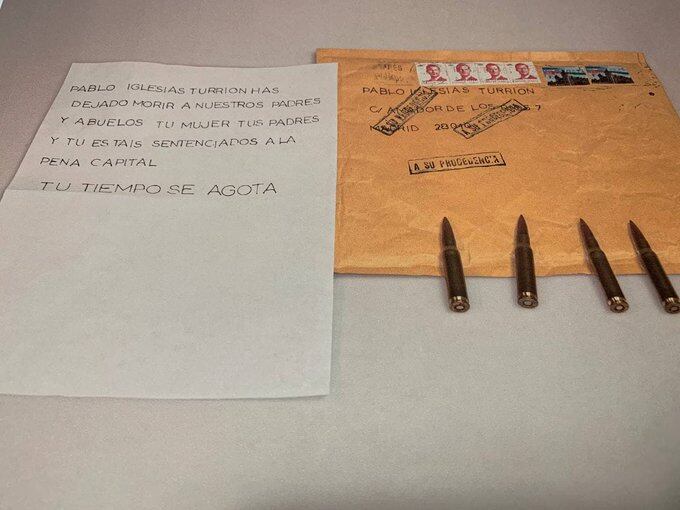 PABLO IGLESIAS TURRION HAS
DEJADO MORIR A NUESTROS PADRES
Y ABUELOS TU MUJER TUS PADRES
Y TU ESTAIS SENTENCIADOS A LA
PENA CAPITAL
TU TIEMPO SE AGOTA
PABLO IGLESIAS TURRIÓN
C/ DE LOS 7
MADRID
A SU PROCEDENCIA
A SU PROCEDENCIA
A SU PROCEDENCIA